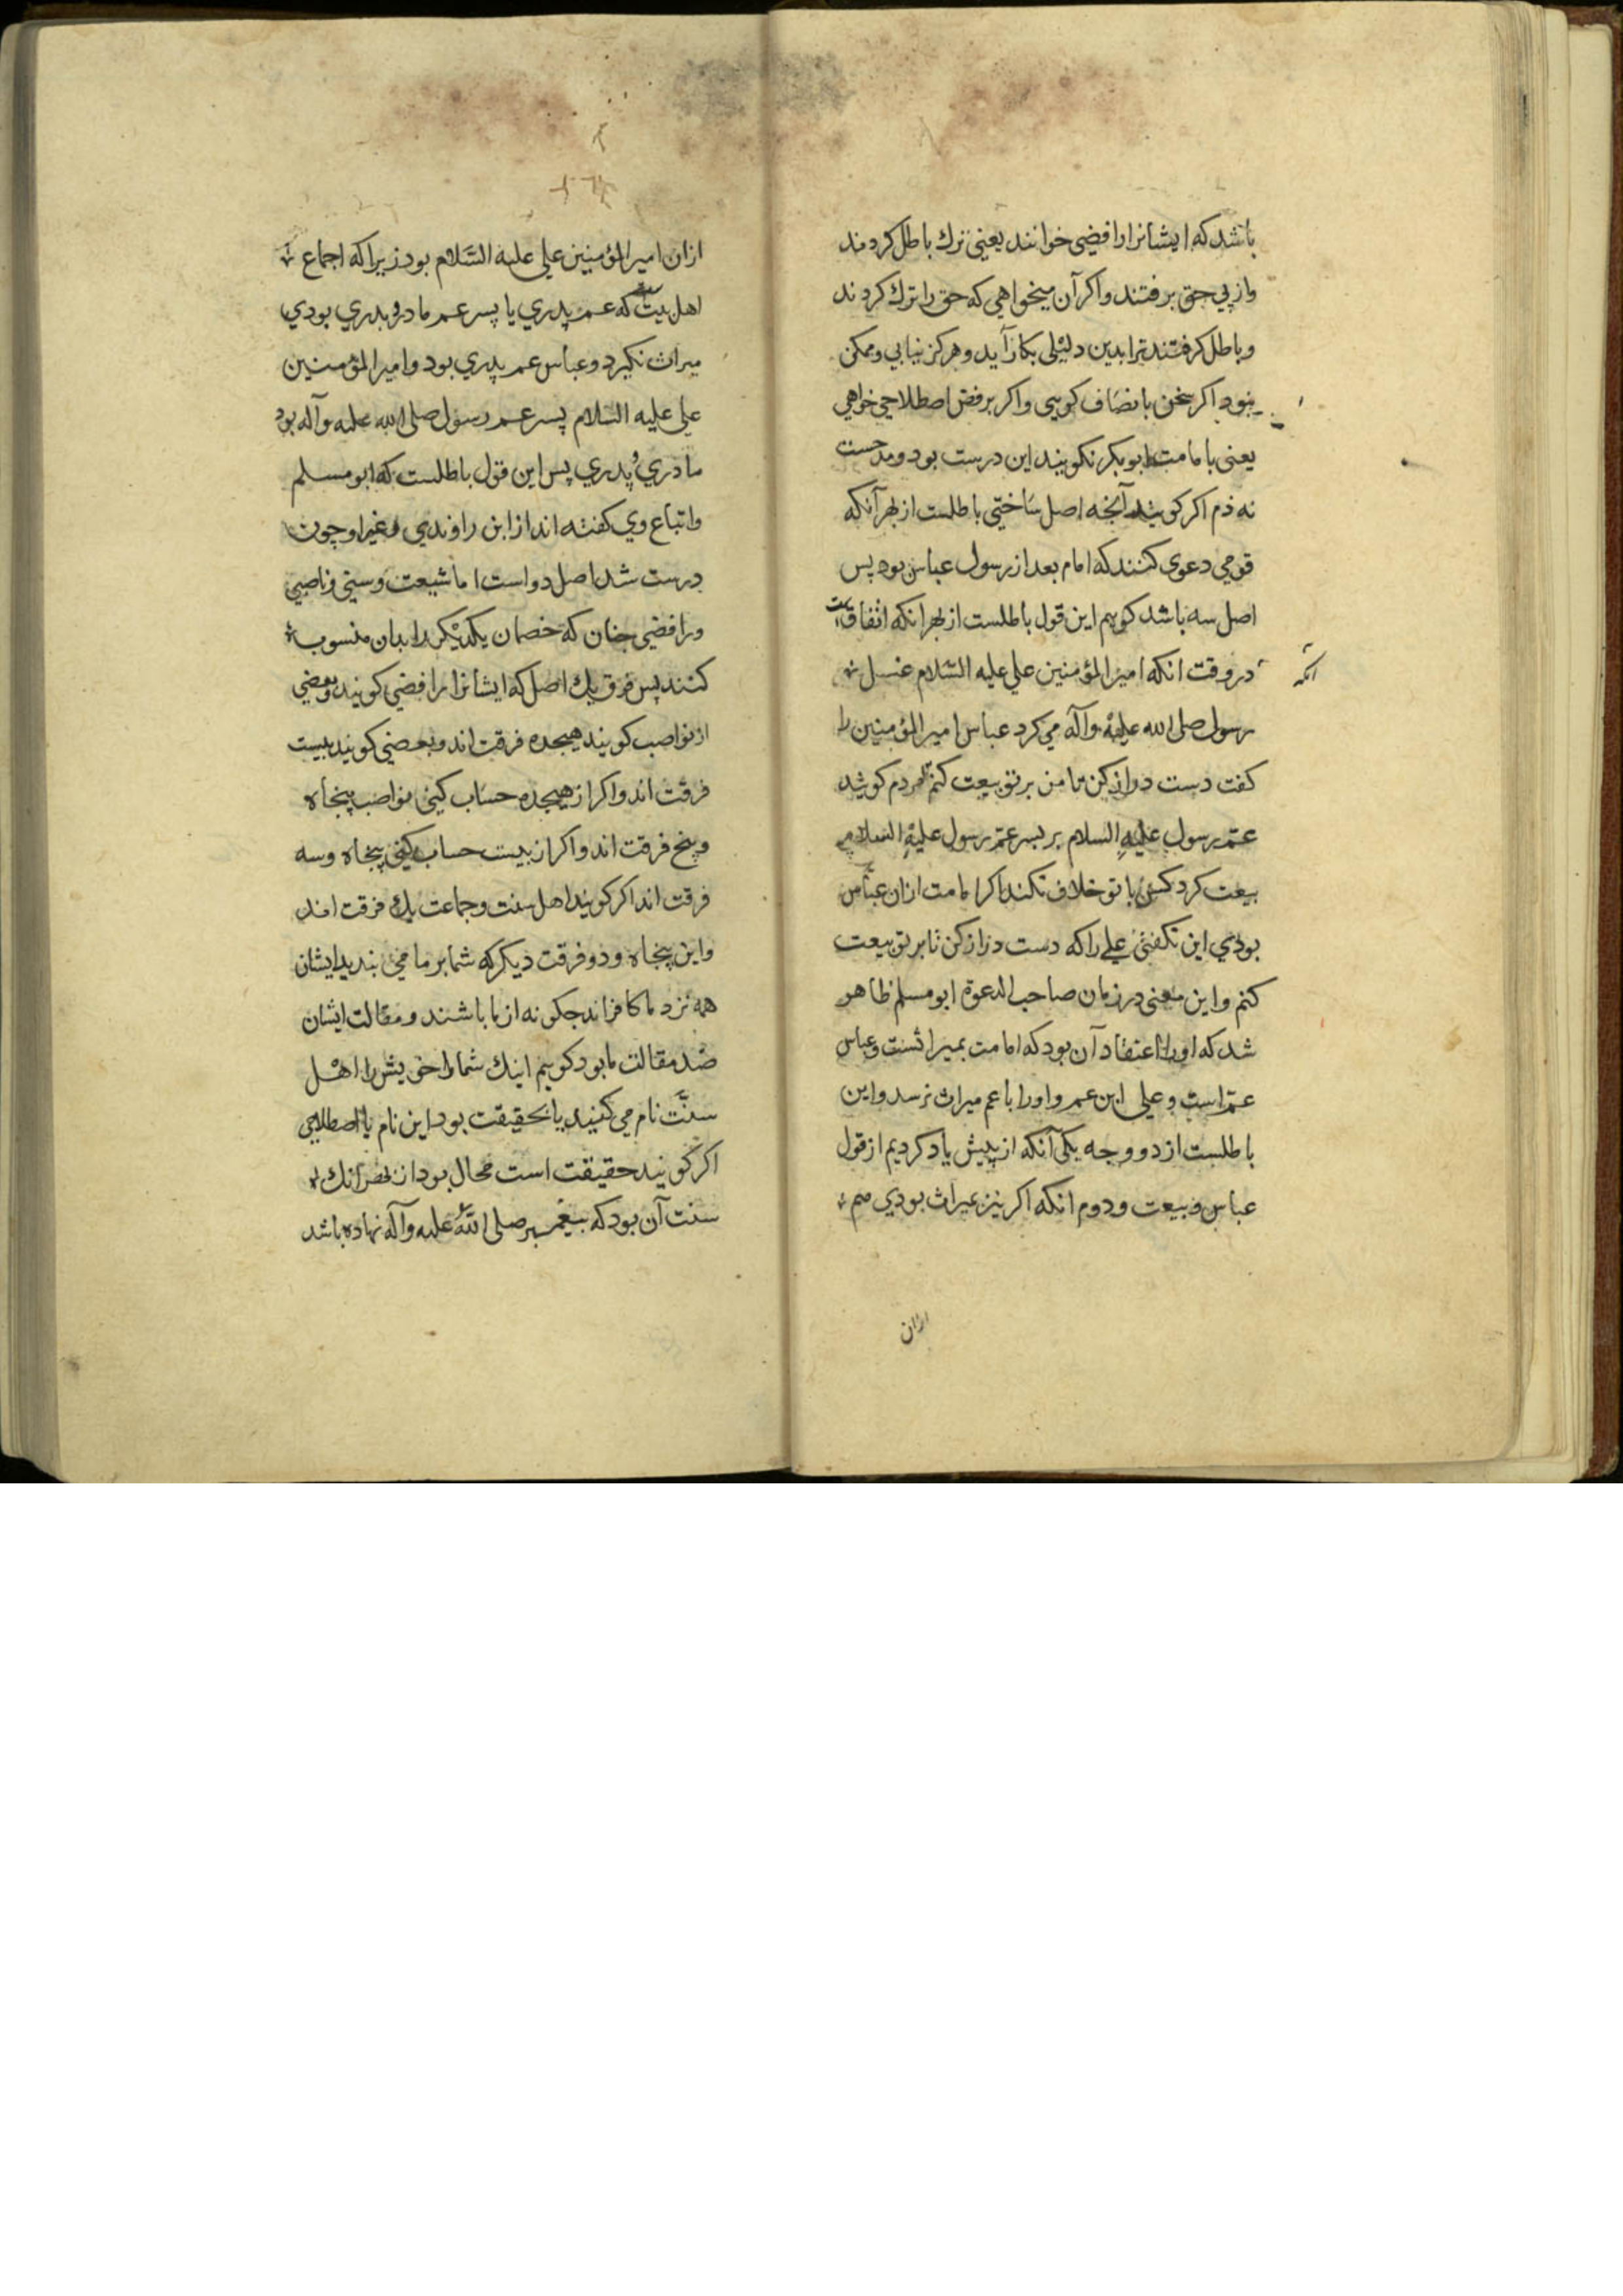 باشد که ایشانرا رافضی خوانند یعنی ترك باطل کردند
واز پی حق برفتند واکر آن میخواهی که حق را ترك کردند
وباطل کرفتند ترا بدین دلیلی بکار آید وهرکز نیابی وممکن
نبود اکر سخن بانصاف کویی واکر برفض اصطلاحی خواهی
یعنی بامامت ابوبکر نکویند این درست بود ومدحست
نه ذم اکر کویند آنجه اصل ساختی باطلست از بهر آنکه
قومی دعوی کنند که امام بعد از رسول عباس بود پس
اصل سه باشد کویم این قول باطلست از بهر انکه اتفاق است
در وقت انکه امیر المؤمنین علی علیه السلام غسل
رسول صلی الله علیه وآله می کرد عباس امیر المؤمنین را
کفت دست دراز کن تا من بر تو بیعت کنم مردم کویند
عم رسول علیه السلام بر پسر عم رسول علیه السلام
بیعت کرد کس با تو خلاف نکند اکر امامت ازان عباس
بودی این نکفتی علی را که دست دراز کن تا بر تو بیعت
کنم واین معنی در زمان صاحب الدعوة ابو مسلم ظاهر
شد که اورا اعتقاد آن بود که امامت بمیراثست وعباس
عم است وعلی ابن عم واورا با عم میراث نرسد واین
باطلست از دو وجه یکی آنکه از پیش یاد کردیم از قول
عباس وبیعت ودوم انکه اکر نیز بمیراث بودی هم
ازان
ازان امیر المؤمنین علی علیه السلام بود زیرا که اجماع
اهل بیت که عم پدری با پسر عم مادر وپدری بودی
میراث نکیرد وعباس عم پدری بود وامیر المؤمنین
علی علیه السلام پسر عم رسول صلی الله علیه وآله بود
مادری وپدری پس این قول باطلست که ابو مسلم
واتباع وی کفته اند از ابن راوندی وغیر او چون
درست شد اصل دو است اما شیعت وسنی وناصبی
ورافضی جنان که خصمان یکدیکر را بدان منسوب
کنند پس فرق یك اصل که ایشانرا رافضی کویند وبعضی
از نواصب کویند هیجده فرقت اند وبعضی کویند بیست
فرقت اند واکر از هیجده حساب کنی نواصب پنجاه
وپنج فرقت اند واکر از بیست حساب کنی پنجاه وسه
فرقت اند اکر کویند اهل سنت وجماعت یك فرقت اند
واین پنجاه ودو فرقت دیکر که شما بر ما می بندید ایشان
همه نزد ما کافراند جکونه از ما باشند ومقالت ایشان
ضد مقالت ما بود کویم اینك شما را خویش را اهل
سنت نام می کنید یا بحقیقت بود این نام یا اصطلاحی
اکر کویند حقیقت است محال بود از بهر آنك
سنت آن بود که پیغمبر صلی الله علیه وآله نهاده باشد